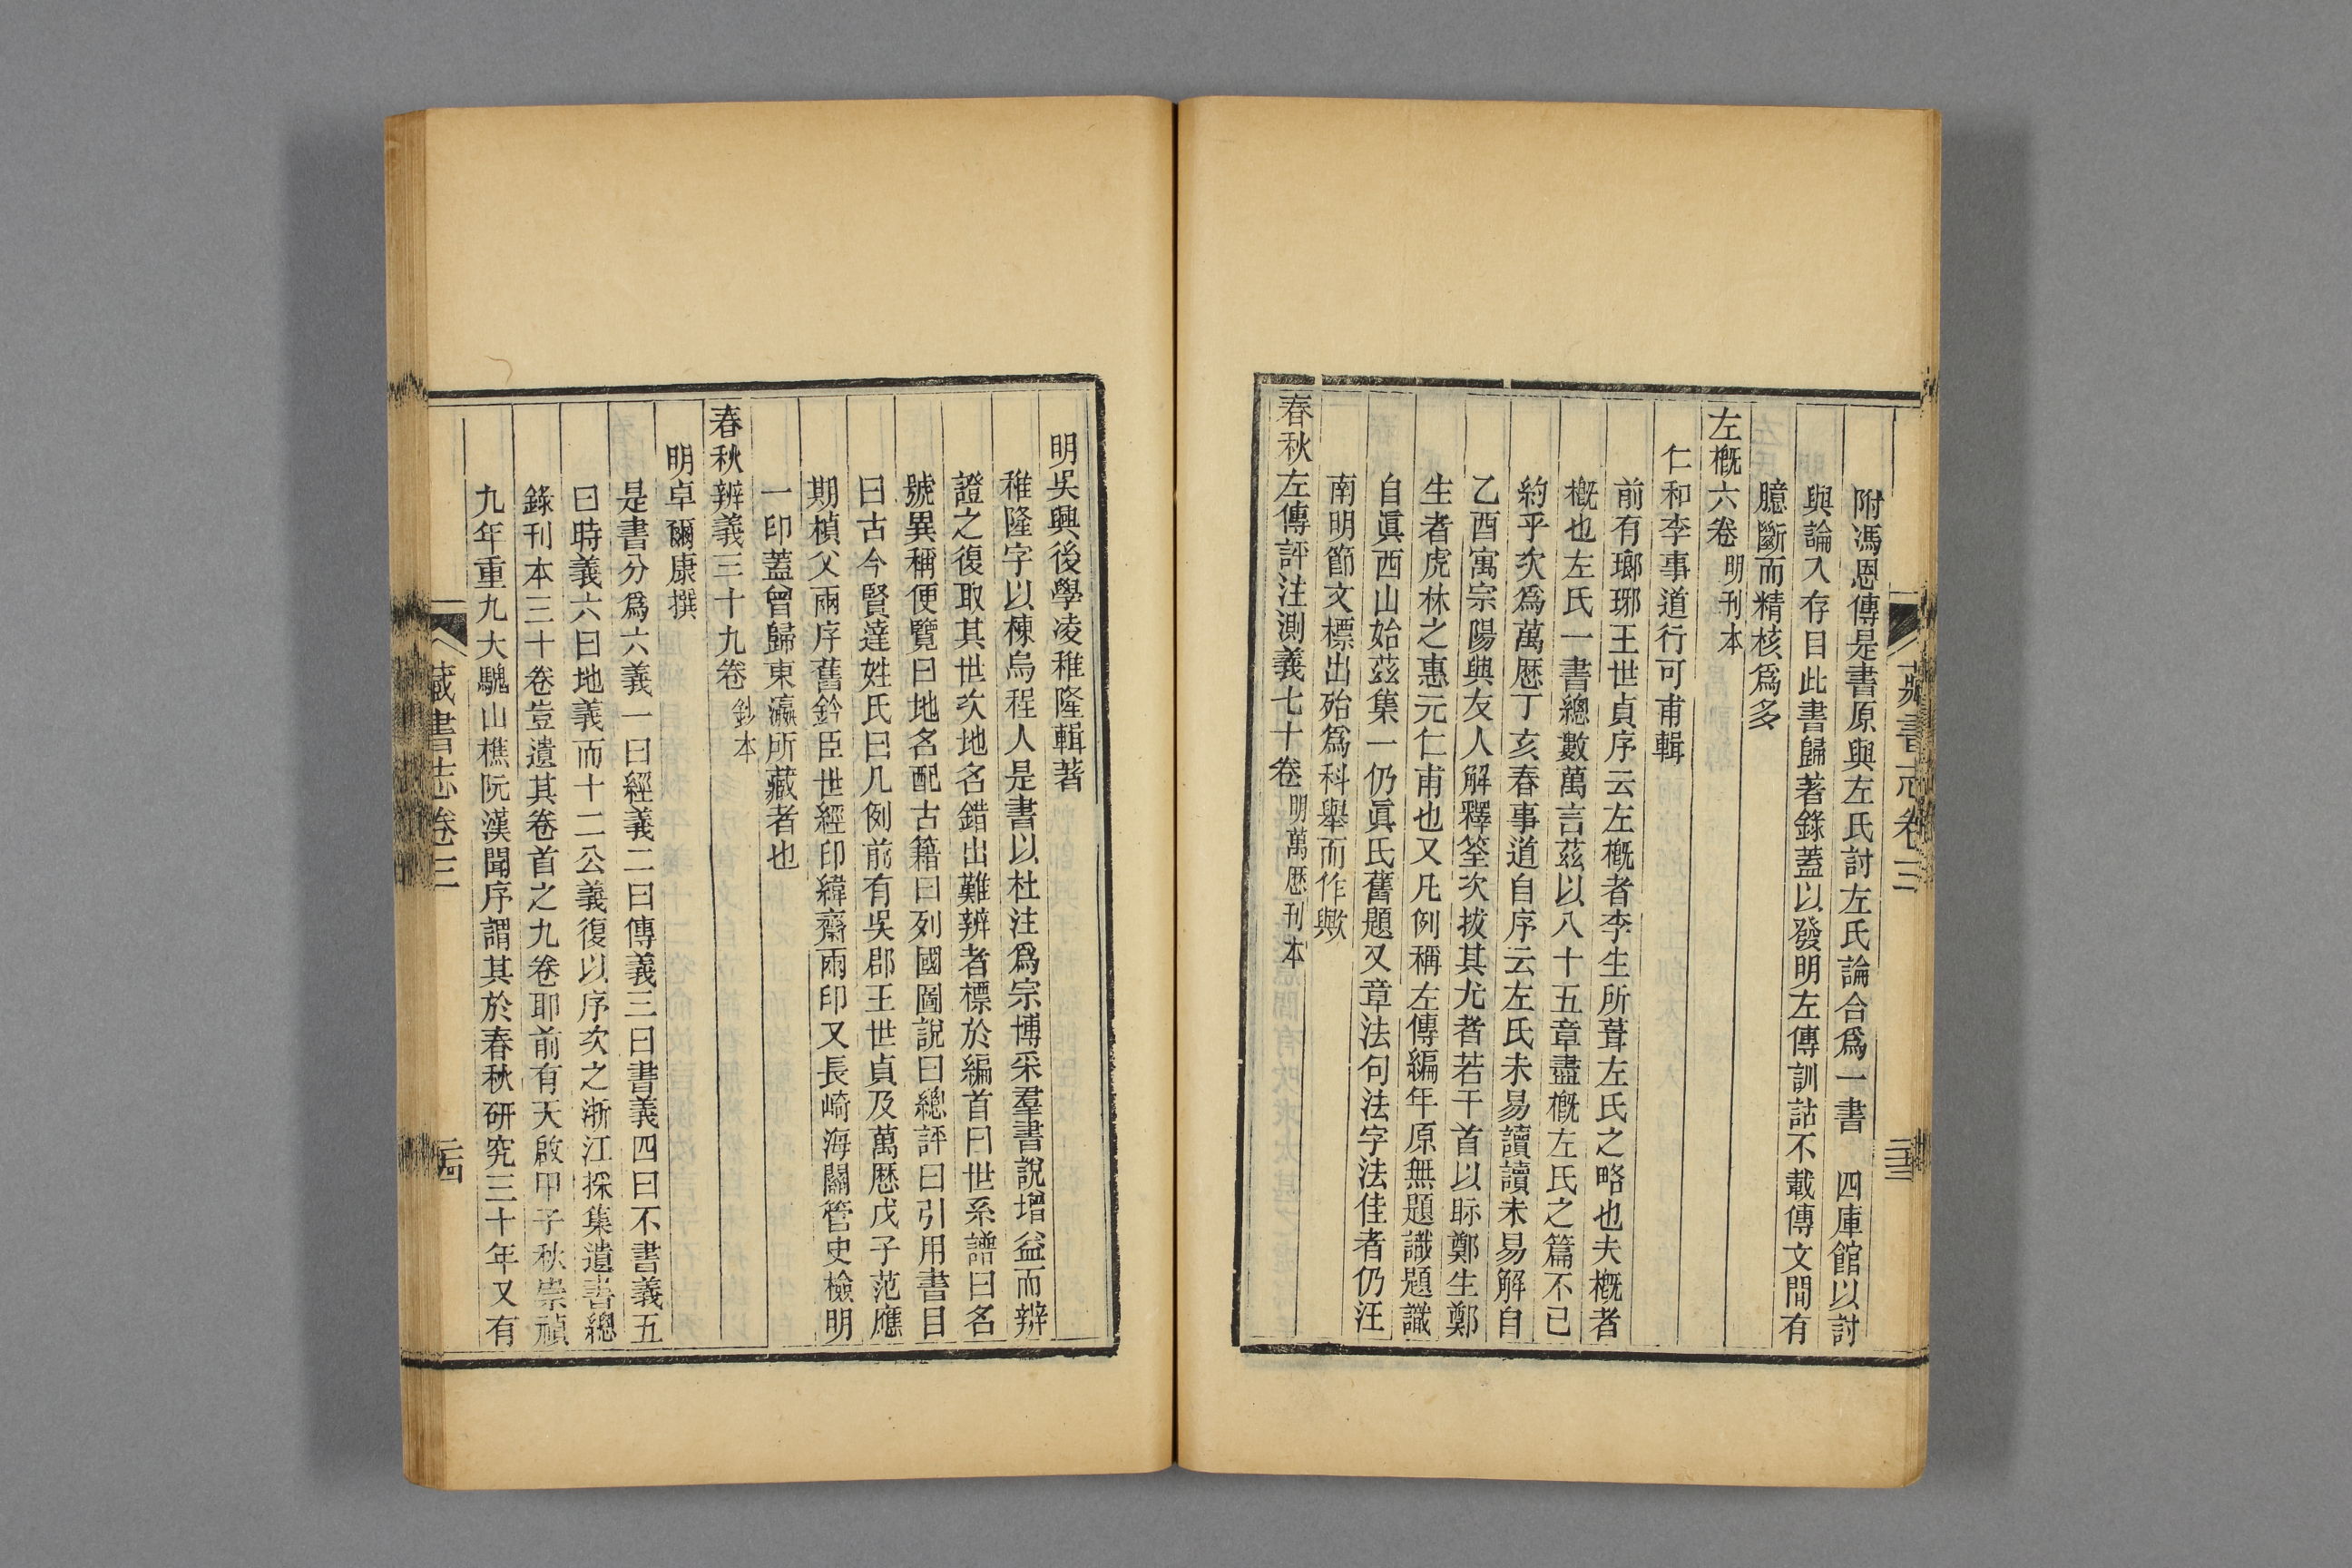 附馮恩傳是書原與左氏討左氏論合爲一書　四庫館以討
與論入存目此書歸著錄蓋以發明左傳訓詁不載傳文間有
臆斷而精核爲多
左概六卷明刊本
仁和李事道行可甫輯
前有瑯琊王世貞序云左概者李生所葺左氏之略也夫概者
概也左氏一書總數萬言茲以八十五章盡概左氏之篇不已
約乎次爲萬歷丁亥春事道自序云左氏未易讀讀未易解自
乙酉寓宗陽與友人解釋筌次拔其尤者若干首以眎鄭生鄭
生者虎林之惠元仁甫也又凡例稱左傳編年原無題識題識
自眞西山始茲集一仍眞氏舊題又章法句法字法佳者仍汪
南明節文標出殆爲科舉而作歟
春秋左傳評注測義七十卷明萬歷刊本
明吳興後學凌稚隆輯著
稚隆字以棟烏程人是書以杜注爲宗博采羣書說增益而辨
證之復取其世次地名錯出難辨者標於編首曰世系譜曰名
號異稱便覽曰地名配古籍曰列國圖說曰總評曰引用書目
曰古今賢達姓氏曰凡例前有吳郡王世貞及萬歷戊子范應
期楨父兩序舊鈐臣世經印緯齋兩印又長崎海關管史檢明
一印蓋曾歸東瀛所藏者也
春秋辨義三十九卷鈔本
明卓爾康撰
是書分爲六義一曰經義二曰傳義三曰書義四曰不書義五
曰時義六曰地義而十二公義復以序次之浙江採集遺書總
錄刊本三十卷豈遺其卷首之九卷耶前有天啟甲子秋崇禎
九年重九大騩山樵阮漢聞序謂其於春秋研究三十年又有
藏書志卷三
二十三
藏書志卷三
二十四